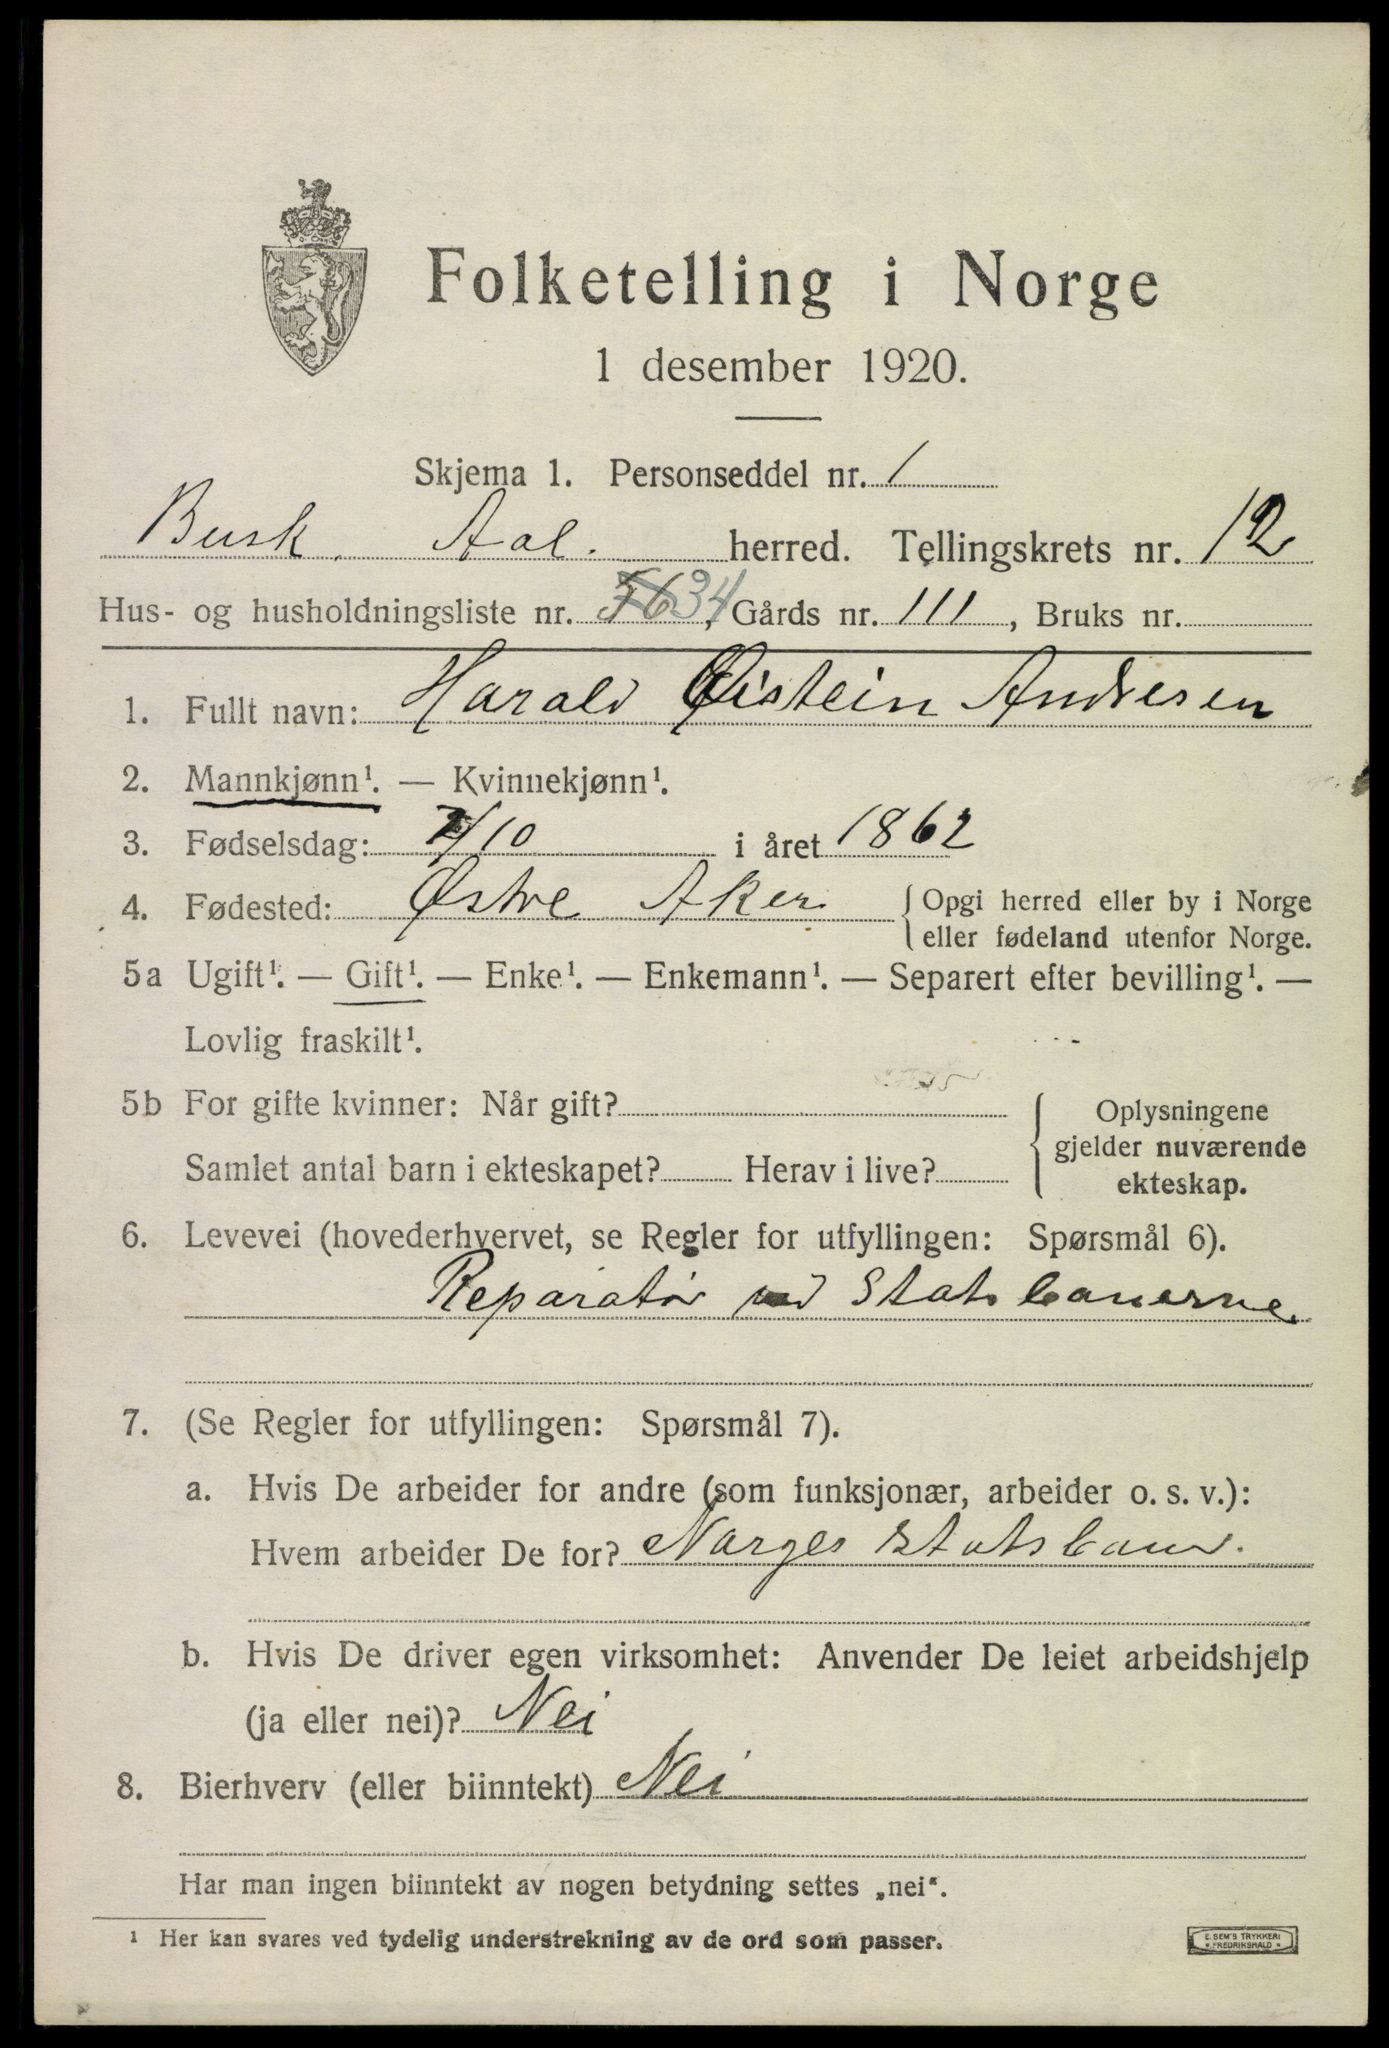 Folketelling i Norge
1 desember 1920.
Skjema 1. Personseddel nr. 1
Busk. Aal. herred. Tellingskrets nr. 12
Hus- og husholdningsliste nr. 56 34, Gårds nr. 111, Bruks nr.
1. Fullt navn: Harald Øistein Andresen
2. Mannkjønn¹. — Kvinnekjønn¹.
3. Fødselsdag: 7/10 i året 1862
4. Fødested: Østre Aker { Opgi herred eller by i Norge
eller fødeland utenfor Norge.
5a Ugift¹. — Gift¹. — Enke¹. — Enkemann¹. — Separert efter bevilling¹. —
Lovlig fraskilt¹.
5b For gifte kvinner: Når gift? { Oplysningene
gjelder nuværende
Samlet antal barn i ekteskapet? Herav i live? ekteskap.
6. Levevei (hovederhvervet, se Regler for utfyllingen: Spørsmål 6).
Reparatør ved Statsbanerne
7. (Se Regler for utfyllingen: Spørsmål 7).
a. Hvis De arbeider for andre (som funksjonær, arbeider o. s. v.):
Hvem arbeider De for? Norges Statsbaner.
b. Hvis De driver egen virksomhet: Anvender De leiet arbeidshjelp
(ja eller nei)? Nei
8. Bierhverv (eller biinntekt) Nei
Har man ingen biinntekt av nogen betydning settes „nei“.
¹ Her kan svares ved tydelig understrekning av de ord som passer.
E. SEM'S TRYKKERI
FREDRIKSHALD